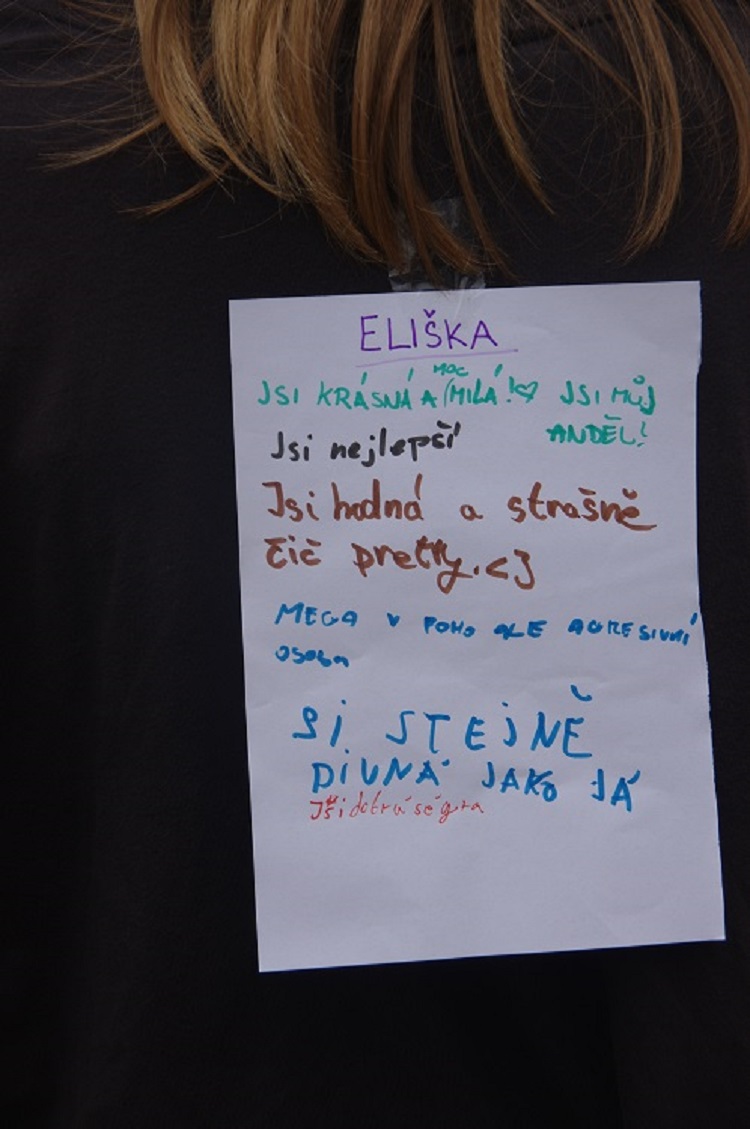 ELIŠKA
JSI KRÁSNÁ A MOC MILÁ!♡ JSI MŮJ
ANDĚL!
Jsi nejlepší
Jsi hodná a strašně
čič pretty. <3
MEGA V POHO ALE AGRESIVNÍ
OSOBA
SI STEJNĚ
DIVNÁ JAKO JÁ
Jsi dobrá ségra